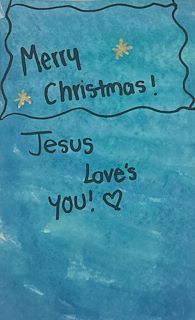 Merry
Christmas!
Jesus
Love's
You! ♡